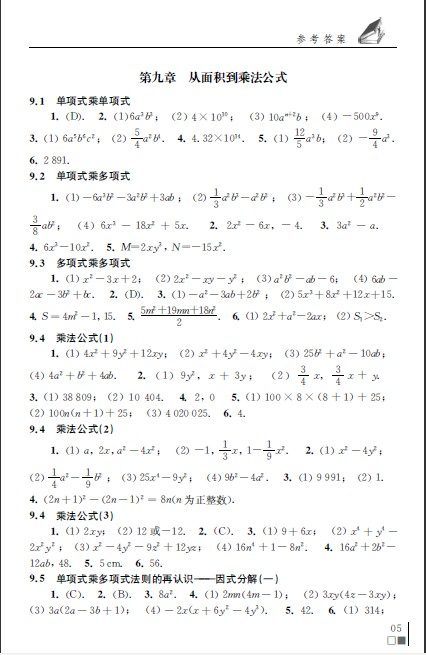 参考答案
第九章 从面积到乘法公式
9.1 单项式乘单项式
1. (D). 2. (1)6a³b³; (2)4×10¹⁰; (3)10aⁿ⁺²b; (4)-500x⁸.
3. (1)6a⁵b⁶c²; (2)5/4a²b⁴. 4. 4.32×10¹⁴. 5. (1)12/5a³b; (2)-9/4a².
6. 2 891.
9.2 单项式乘多项式
1. (1)-6a³b²-3a²b²+3ab; (2)1/3a²b³-a²b²; (3)-1/3a²b³+1/2a²b²-
3/8ab²; (4)6x³-18x²+5x. 2. 2x²-6x, -4. 3. 3a²-a.
4. 6x³-10x². 5. M=2xy², N=-15x².
9.3 多项式乘多项式
1. (1)x²-3x+2; (2)2x²-xy-y²; (3)a²b²-ab-6; (4)6ab-
2ac-3b²+bc. 2. (D). 3. (1)-a²-3ab+2b²; (2)5x³+8x²+12x+15.
4. S=4m²-1, 15. 5. (5m²+19mn+18n²)/2. 6. (1)2x²+a²-2ax; (2)S₁>S₂.
9.4 乘法公式(1)
1. (1)4x²+9y²+12xy; (2)x²+4y²-4xy; (3)25b²+a²-10ab;
(4)4a²+b²+4ab. 2. (1)9y², x+3y; (2)3/4x, 3/4x+y.
3. (1)38 809; (2)10 404. 4. 2, 0 5. (1)100×8×(8+1)+25;
(2)100n(n+1)+25; (3)4 020 025. 6. 4.
9.4 乘法公式(2)
1. (1)a, 2x, a²-4x²; (2)-1, 1/3x, 1-1/9x². 2. (1)x²-4y²;
(2)1/4a²-1/9b²; (3)25x⁴-9y²; (4)9b²-4a². 3. (1)9 991; (2)1.
4. (2n+1)²-(2n-1)²=8n(n为正整数).
9.4 乘法公式(3)
1. (1)2xy; (2)12或-12. 2. (C). 3. (1)9+6x; (2)x⁴+y⁴-
2x²y²; (3)x²-4y²-9z²+12yz; (4)16n⁴+1-8n². 4. 16a²+2b²-
12ab, 48. 5. 5 cm. 6. 56.
9.5 单项式乘多项式法则的再认识——因式分解(一)
1. (C). 2. (B). 3. 8a². 4. (1)2mn(4m-1); (2)3xy(4z-3xy);
(3)3a(2a-3b+1); (4)-2x(x+6y²-4y³). 5. 42. 6. (1)314;
05